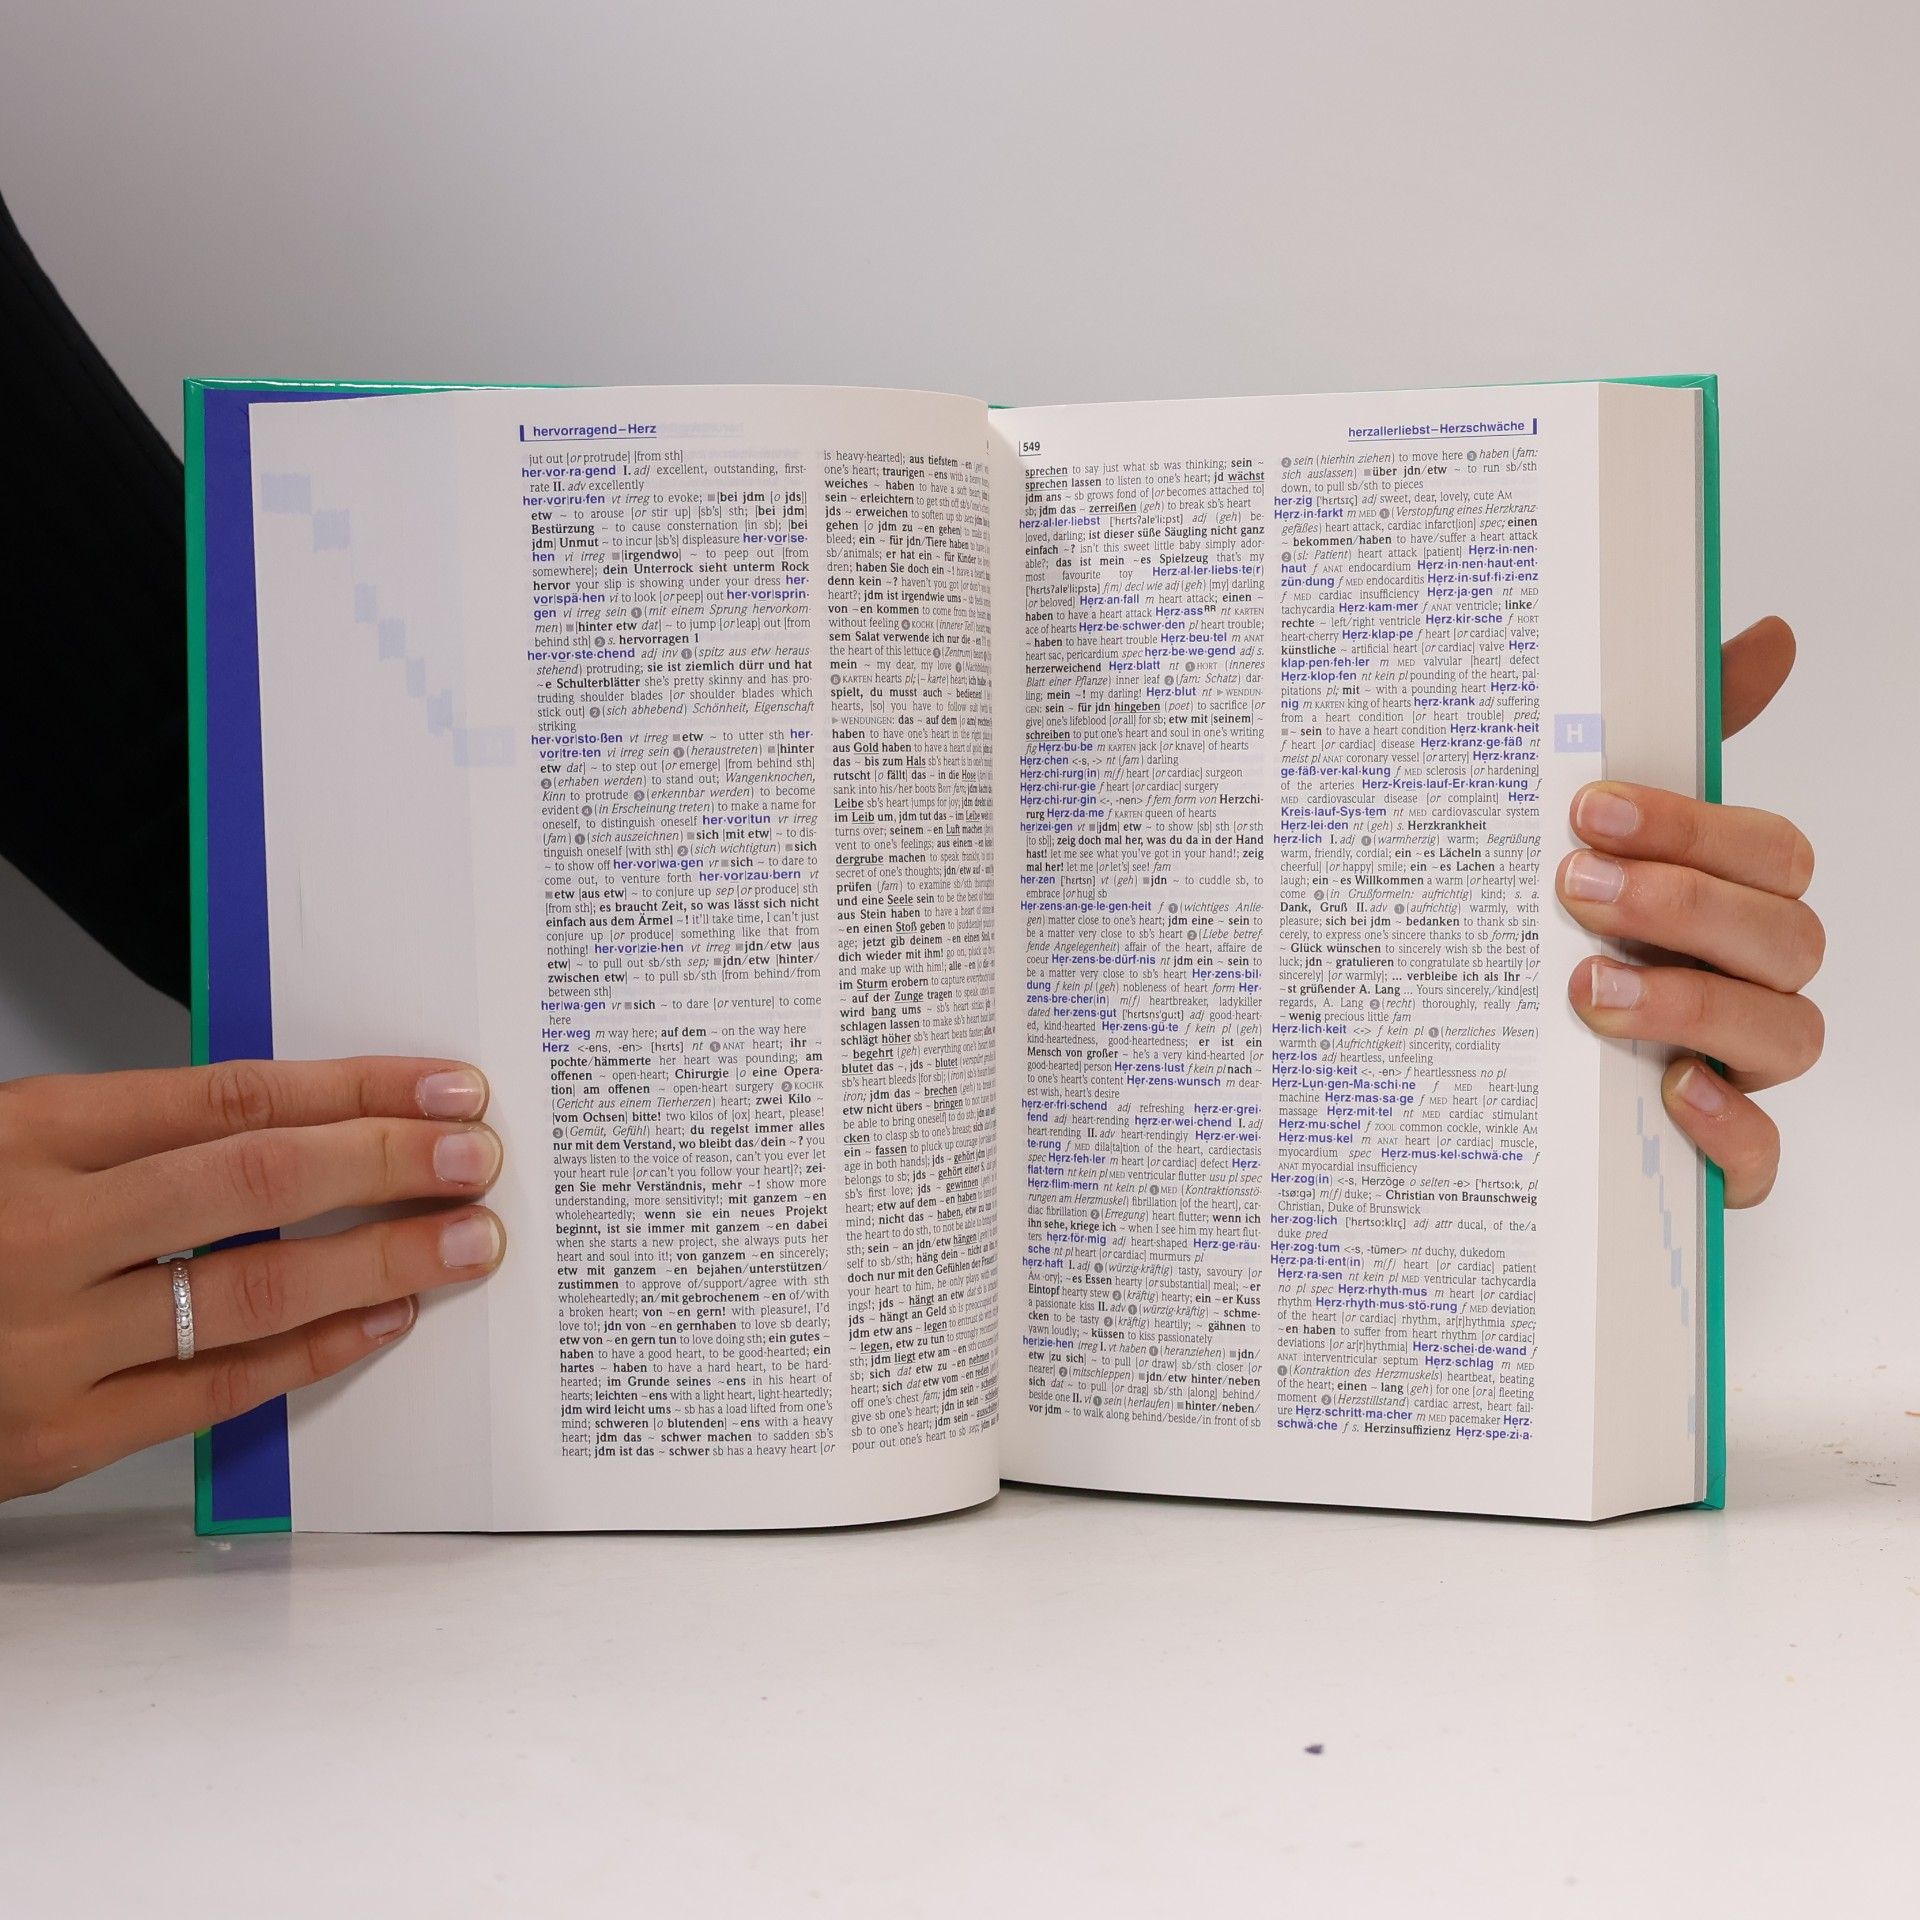 hervorragend–Herz
jut out [or protrude] [from sth]
her·vor·ra·gend I. adj excellent, outstanding, first-
rate II. adv excellently
her·vor|ru·fen vt irreg to evoke; ■[bei jdm [o jds]]
etw ~ to arouse [or stir up] [sb's] sth; [bei jdm]
Bestürzung ~ to cause consternation [in sb]; [bei
jdm] Unmut ~ to incur [sb's] displeasure her·vor|se-
hen vi irreg ■[irgendwo] ~ to peep out [from
somewhere]; dein Unterrock sieht unterm Rock
hervor your slip is showing under your dress her-
vor|spä·hen vi to look [or peep] out her·vor|sprin-
gen vi irreg sein ❶ (mit einem Sprung hervorkom-
men) ~ [hinter etw dat] ~ to jump [or leap] out [from
behind sth] ❷ s. hervorragen 1
her·vor·ste·chend adj inv ❶ (spitz aus etw heraus-
stehend) protruding; sie ist ziemlich dürr und hat
~e Schulterblätter she's pretty skinny and has pro-
truding shoulder blades [or shoulder blades which
stick out] ❷ (sich abhebend) Schönheit, Eigenschaft
striking
her·vor|sto·ßen vt irreg ■etw ~ to utter sth her-
vor|tre·ten vi irreg sein ❶ (heraustreten) ■[hinter
etw dat] ~ to step out [or emerge] [from behind sth]
❷ (erhaben werden) to stand out; Wangenknochen,
Kinn to protrude ❸ (erkennbar werden) to become
evident ❹ (in Erscheinung treten) to make a name for
oneself, to distinguish oneself her·vor|tun vr irreg
(fam) ❶ (sich auszeichnen) ■sich [mit etw] ~ to dis-
tinguish oneself [with sth] ❷ (sich wichtigtun) ■sich
~ to show off her·vor|wa·gen vr ■sich ~ to dare to
come out, to venture forth her·vor|zau·bern vt
■etw [aus etw] ~ to conjure up sep [or produce] sth
[from sth]; es braucht Zeit, so was lässt sich nicht
einfach aus dem Ärmel ~! it'll take time, I can't just
conjure up [or produce] something like that from
nothing! her·vor|zie·hen vt irreg ■jdn/etw [aus
etw] ~ to pull out sb/sth sep; ■jdn/etw [hinter/
zwischen etw] ~ to pull sb/sth [from behind/from
between sth]
her|wa·gen vr ■sich ~ to dare [or venture] to come
here
Her·weg m way here; auf dem ~ on the way here
Herz <-ens, -en> [hɛrts] nt ❶ ANAT heart; ihr ~
pochte/hämmerte her heart was pounding; am
offenen ~ open-heart; Chirurgie [o eine Opera-
tion] am offenen ~ open-heart surgery ❷ KOCHK
(Gericht aus einem Tierherzen) heart; zwei Kilo ~
[vom Ochsen] bitte! two kilos of [ox] heart, please!
❸ (Gemüt, Gefühl) heart; du regelst immer alles
nur mit dem Verstand, wo bleibt das/dein ~? you
always listen to the voice of reason, can't you ever let
your heart rule [or can't you follow your heart]?; zei-
gen Sie mehr Verständnis, mehr ~! show more
understanding, more sensitivity!; mit ganzem ~en
wholeheartedly; wenn sie ein neues Projekt
beginnt, ist sie immer mit ganzem ~en dabei
when she starts a new project, she always puts her
heart and soul into it!; von ganzem ~en sincerely;
etw mit ganzem ~en bejahen/unterstützen/
zustimmen to approve of/support/agree with sth
wholeheartedly; an/mit gebrochenem ~en of/with
a broken heart; von ~en gern! with pleasure!, I'd
love to!; jdn von ~en gernhaben to love sb dearly;
etw von ~en gern tun to love doing sth; ein gutes ~
haben to have a good heart, to be good-hearted; ein
hartes ~ haben to have a hard heart, to be hard-
hearted; im Grunde seines ~ens in his heart of
hearts; leichten ~ens with a light heart, light-heartedly;
jdm wird leicht ums ~ sb has a load lifted from one's
mind; schweren [o blutenden] ~ens with a heavy
heart; jdm das ~ schwer machen to sadden sb's
heart; jdm ist das ~ schwer sb has a heavy heart [or
is heavy-hearted]; aus tiefstem ~en
one's heart; traurigen ~ens with a
weiches ~ haben to have a soft
sein ~ erleichtern to get sth off sb's
jds ~ erweichen to soften up sb
gehen [o jdm zu ~en gehen]
bleed; ein ~ für jdn/Tiere haben to have
sb/animals; er hat ein ~ für Kinder
dren; haben Sie doch ein ~! have a heart,
denn kein ~? haven't you got
heart?; jdm ist irgendwie ums ~
von ~en kommen to come from the
without feeling ❹ KOCHK (innerer Teil) heart;
sem Salat verwende ich nur die ~en
the heart of this lettuce ❺ (Zentrum) heart
mein ~ my dear, my love
KARTEN hearts pl; (~karte) heart;
spielt, du musst auch ~ bedienen!
hearts, [so] you have to follow suit
▶ WENDUNGEN: das ~ auf dem
haben to have one's heart in the right
aus Gold haben to have a heart of gold;
das ~ bis zum Hals sb's heart is in one's
rutscht [o fällt] das ~ in die Hose
sank into his/her boots BRIT fam;
Leibe sb's heart jumps for joy;
im Leib um, jdm tut das ~ im Leibe
turns over; seinem ~en Luft machen
vent to one's feelings; aus einem ~en
dergrube machen to speak frankly,
secret of one's thoughts; jdn/etw auf
prüfen (fam) to examine sb/sth
und eine Seele sein to be the best of
aus Stein haben to have a heart of
~en einen Stoß geben to [suddenly]
age; jetzt gib deinem ~en einen Stoß,
dich wieder mit ihm! go on,
and make up with him!; alle ~en
im Sturm erobern to capture everybody's
~ auf der Zunge tragen to speak
wird bang ums ~ sb's heart sinks;
schlagen lassen to make sb's heart
schlägt höher sb's heart beats faster;
~ begehrt (geh) everything one's heart
blutet das ~, jds ~ blutet
sb's heart bleeds [for sb];
iron; jdm das ~ brechen (geh)
etw nicht übers ~ bringen
be able to bring oneself] to do sth;
cken to clasp sb to one's breast;
ein ~ fassen to pluck up courage
age in both hands]; jds ~ gehört jdm
belongs to sb; jds ~ gehört einer S.
sb's first love; jds ~ gewinnen
heart; etw auf dem ~en haben
mind; nicht das ~ haben, etw zu tun
the heart to do sth, to not be able to
sth; sein ~ an jdn/etw hängen
self to sb/sth; häng dein ~ nicht an
doch nur mit den Gefühlen der Frauen!
your heart to him, he only plays with
ings!; jds ~ hängt an etw dat
jds ~ hängt an Geld sb is preoccupied
jdm etw ans ~ legen to entrust sb with
~ legen, etw zu tun to strongly
sth; jdm liegt etw am ~en
sb; sich dat etw zu ~en nehmen
heart; sich dat etw vom ~en reden
off one's chest fam; jdm sein ~
give sb one's heart; jdn in sein ~
sb to one's heart; jdm sein ~
pour out one's heart to sb sep;
549
herzallerliebst–Herzschwäche
sprechen to say just what sb was thinking; sein ~
sprechen lassen to listen to one's heart; jd wächst
jdm ans ~ sb grows fond of [or becomes attached to]
sb; jdm das ~ zerreißen (geh) to break sb's heart
herz·al·ler·liebst ['hɛrtsʔalɐ'li:pst] adj (geh) be-
loved, darling; ist dieser süße Säugling nicht ganz
einfach ~? isn't this sweet little baby simply ador-
able?; das ist mein ~es Spielzeug that's my
most favourite toy Herz·al·ler·liebs·te(r)
['hɛrtsʔalɐ'li:pstə] f(m) decl wie adj (geh) [my] darling
[or beloved] Herz·an·fall m heart attack; einen ~
haben to have a heart attack Herz·ass^RR nt KARTEN
ace of hearts Herz·be·schwer·den pl heart trouble;
~ haben to have heart trouble Herz·beu·tel m ANAT
heart sac, pericardium spec herz·be·we·gend adj s.
herzerweichend Herz·blatt nt ❶ HORT (inneres
Blatt einer Pflanze) inner leaf ❷ (fam: Schatz) dar-
ling; mein ~! my darling! Herz·blut nt ▶ WENDUN-
GEN: sein ~ für jdn hingeben (poet) to sacrifice [or
give] one's lifeblood [or all] for sb; etw mit [seinem] ~
schreiben to put one's heart and soul in one's writing
fig Herz·bu·be m KARTEN jack [or knave] of hearts
Herz·chen <-s, -> nt (fam) darling
Herz·chi·rurg(in) m(f) heart [or cardiac] surgeon
Herz·chi·rur·gie f heart [or cardiac] surgery
Herz·chi·rur·gin <-, -nen> f fem form von Herzchi-
rurg Herz·da·me f KARTEN queen of hearts
her|zei·gen vt ■[jdm] etw ~ to show [sb] sth [or sth
[to sb]]; zeig doch mal her, was du da in der Hand
hast! let me see what you've got in your hand!; zeig
mal her! let me [or let's] see! fam
her·zen ['hɛrtsn] vt (geh) ■jdn ~ to cuddle sb, to
embrace [or hug] sb
Her·zens·an·ge·le·gen·heit f ❶ (wichtiges Anlie-
gen) matter close to one's heart; jdm eine ~ sein to
be a matter very close to sb's heart ❷ (Liebe betref-
fende Angelegenheit) affair of the heart, affaire de
coeur Her·zens·be·dürf·nis nt jdm ein ~ sein to
be a matter very close to sb's heart Her·zens·bil-
dung f kein pl (geh) nobleness of heart form Her-
zens·bre·cher(in) m(f) heartbreaker, ladykiller
dated her·zens·gut ['hɛrtsns'gu:t] adj good-heart-
ed, kind-hearted Her·zens·gü·te f kein pl (geh)
kind-heartedness, good-heartedness; er ist ein
Mensch von großer ~ he's a very kind-hearted [or
good-hearted] person Her·zens·lust f kein pl nach ~
to one's heart's content Her·zens·wunsch m dear-
est wish, heart's desire
herz·er·fri·schend adj refreshing herz·er·grei-
fend adj heart-rending herz·er·wei·chend I. adj
heart-rending II. adv heart-rendingly Herz·er·wei-
te·rung f MED dila[ta]tion of the heart, cardiectasis
spec Herz·feh·ler m heart [or cardiac] defect Herz-
flat·tern nt kein pl MED ventricular flutter usu pl spec
Herz·flim·mern nt kein pl ❶ MED (Kontraktionsstö-
rungen am Herzmuskel) fibrillation [of the heart], car-
diac fibrillation ❷ (Erregung) heart flutter; wenn ich
ihn sehe, kriege ich ~ when I see him my heart flut-
ters herz·för·mig adj heart-shaped Herz·ge·räu-
sche nt pl heart [or cardiac] murmurs pl
herz·haft I. adj ❶ (würzig-kräftig) tasty, savoury [or
AM -ory]; ~es Essen hearty [or substantial] meal; ~er
Eintopf hearty stew ❷ (kräftig) hearty; ein ~er Kuss
a passionate kiss II. adv ❶ (würzig-kräftig) ~ schme-
cken to be tasty ❷ (kräftig) heartily; ~ gähnen to
yawn loudly; ~ küssen to kiss passionately
her|zie·hen irreg I. vt haben ❶ (heranziehen) ■jdn/
etw [zu sich] ~ to pull [or draw] sb/sth closer [or
nearer] ❷ (mitschleppen) ■jdn/etw hinter/neben
sich dat ~ to pull [or drag] sb/sth [along] behind/
beside one II. vi ❶ sein (herlaufen) ■hinter/neben/
vor jdm ~ to walk along behind/beside/in front of sb
❷ sein (hierhin ziehen) to move here ❸ haben (fam:
sich auslassen) ■über jdn/etw ~ to run sb/sth
down, to pull sb/sth to pieces
her·zig ['hɛrtsɪç] adj sweet, dear, lovely, cute AM
Herz·in·farkt m MED ❶ (Verstopfung eines Herzkranz-
gefäßes) heart attack, cardiac infarct[ion] spec; einen
~ bekommen/haben to have/suffer a heart attack
❷ (sl: Patient) heart attack [patient] Herz·in·nen-
haut f ANAT endocardium Herz·in·nen·haut·ent-
zün·dung f MED endocarditis Herz·in·suf·fi·zi·enz
f MED cardiac insufficiency Herz·ja·gen nt MED
tachycardia Herz·kam·mer f ANAT ventricle; linke/
rechte ~ left/right ventricle Herz·kir·sche f HORT
heart-cherry Herz·klap·pe f heart [or cardiac] valve;
künstliche ~ artificial heart [or cardiac] valve Herz-
klap·pen·feh·ler m MED valvular [heart] defect
Herz·klop·fen nt kein pl pounding of the heart, pal-
pitations pl; mit ~ with a pounding heart Herz·kö-
nig m KARTEN king of hearts herz·krank adj suffering
from a heart condition [or heart trouble] pred;
■~ sein to have a heart condition Herz·krank·heit
f heart [or cardiac] disease Herz·kranz·ge·fäß nt
meist pl ANAT coronary vessel [or artery] Herz·kranz-
ge·fäß·ver·kal·kung f MED sclerosis [or hardening]
of the arteries Herz-Kreis·lauf-Er·kran·kung f
MED cardiovascular disease [or complaint] Herz-
Kreis·lauf-Sys·tem nt MED cardiovascular system
Herz·lei·den nt (geh) s. Herzkrankheit
herz·lich I. adj ❶ (warmherzig) warm; Begrüßung
warm, friendly, cordial; ein ~es Lächeln a sunny [or
cheerful] [or happy] smile; ein ~es Lachen a hearty
laugh; ein ~es Willkommen a warm [or hearty] wel-
come ❷ (in Grußformeln: aufrichtig) kind; s. a.
Dank, Gruß II. adv ❶ (aufrichtig) warmly, with
pleasure; sich bei jdm ~ bedanken to thank sb sin-
cerely, to express one's sincere thanks to sb form; jdn
~ Glück wünschen to sincerely wish sb the best of
luck; jdn ~ gratulieren to congratulate sb heartily [or
sincerely] [or warmly]; ... verbleibe ich als Ihr ~/
~st grüßender A. Lang ... Yours sincerely,/kind[est]
regards, A. Lang ❷ (recht) thoroughly, really fam;
~ wenig precious little fam
Herz·lich·keit <-> f kein pl ❶ (herzliches Wesen)
warmth ❷ (Aufrichtigkeit) sincerity, cordiality
herz·los adj heartless, unfeeling
Herz·lo·sig·keit <-, -en> f heartlessness no pl
Herz-Lun·gen-Ma·schi·ne f MED heart-lung
machine Herz·mas·sa·ge f MED heart [or cardiac]
massage Herz·mit·tel nt MED cardiac stimulant
Herz·mu·schel f ZOOL common cockle, winkle AM
Herz·mus·kel m ANAT heart [or cardiac] muscle,
myocardium spec Herz·mus·kel·schwä·che f
ANAT myocardial insufficiency
Her·zog(in) <-s, Herzöge o selten -e> ['hɛrtso:k, pl
-tsø:gə] m(f) duke; ~ Christian von Braunschweig
Christian, Duke of Brunswick
her·zog·lich ['hɛrtso:klɪç] adj attr ducal, of the/a
duke pred
Her·zog·tum <-s, -tümer> nt duchy, dukedom
Herz·pa·ti·ent(in) m(f) heart [or cardiac] patient
Herz·ra·sen nt kein pl MED ventricular tachycardia
no pl spec Herz·rhyth·mus m heart [or cardiac]
rhythm Herz·rhyth·mus·stö·rung f MED deviation
of the heart [or cardiac] rhythm, ar[r]hythmia spec;
~en haben to suffer from heart rhythm [or cardiac]
deviations [or ar[r]hythmia] Herz·schei·de·wand f
ANAT interventricular septum Herz·schlag m MED
❶ (Kontraktion des Herzmuskels) heartbeat, beating
of the heart; einen ~ lang (geh) for one [or a] fleeting
moment ❷ (Herzstillstand) cardiac arrest, heart fail-
ure Herz·schritt·ma·cher m MED pacemaker Herz-
schwä·che f s. Herzinsuffizienz Herz·spe·zi·a-
H